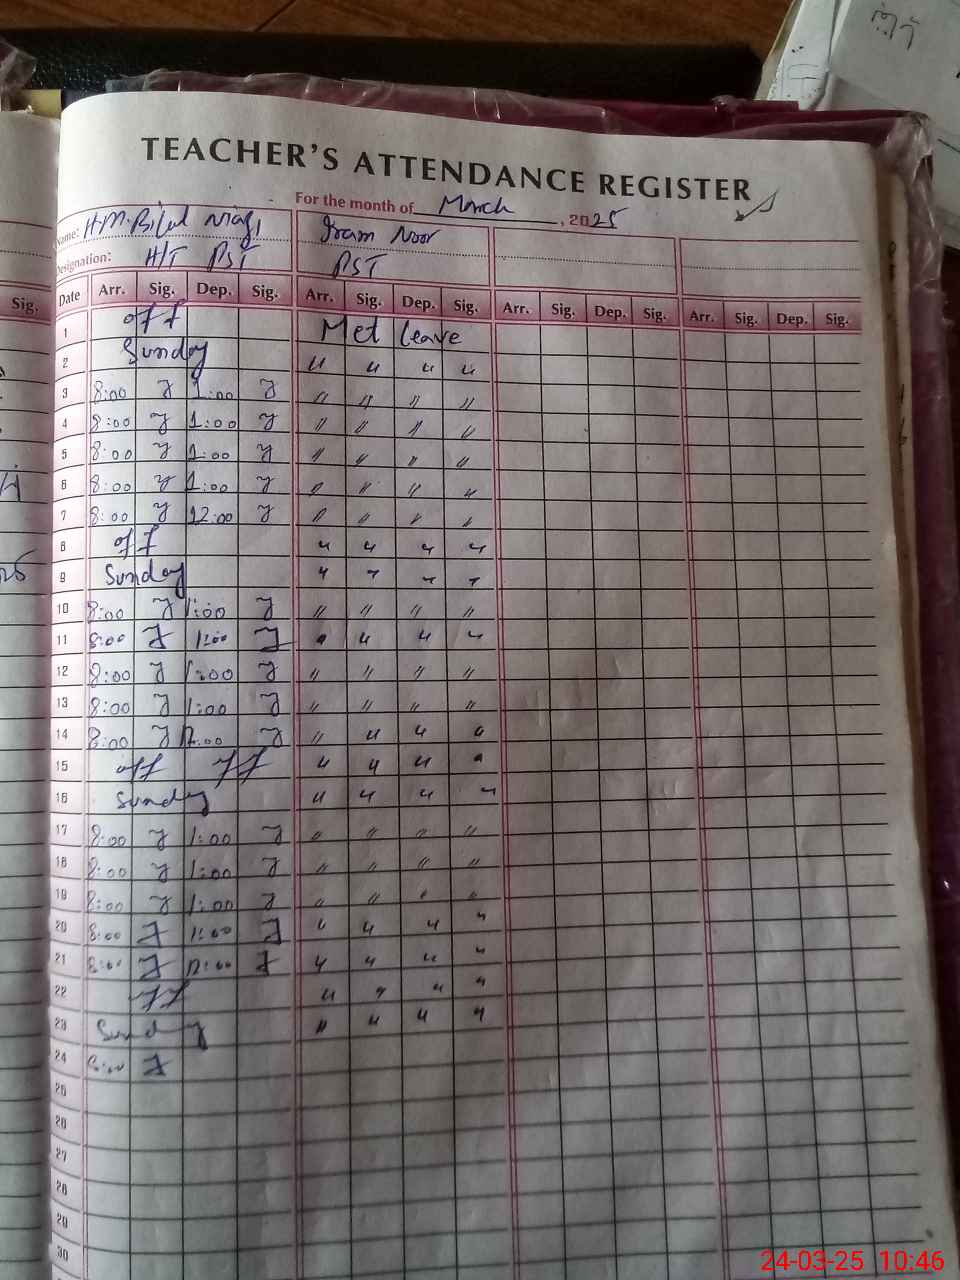 TEACHER'S ATTENDANCE REGISTER
For the month of March, 2025
Name: H.M. Bilal Niazi Iram Noor
Designation: H/T PST PST
Sig. Date Arr. Sig. Dep. Sig. Arr. Sig. Dep. Sig. Arr. Sig. Dep. Sig. Arr. Sig. Dep. Sig.
1 off Met Leave
2 Sunday " " " "
3 8:00 1:00 " " " "
4 8:00 1:00 " " " "
5 8:00 1:00 " " " "
6 8:00 1:00 " " " "
7 8:00 12:00 " " " "
8 off " " " "
9 Sunday " " " "
10 8:00 1:00 " " " "
11 8:00 1:00 " " " "
12 8:00 1:00 " " " "
13 8:00 1:00 " " " "
14 8:00 12:00 " " " "
15 off " " " "
16 Sunday " " " "
17 8:00 1:00 " " " "
18 8:00 1:00 " " " "
19 8:00 1:00 " " " "
20 8:00 1:00 " " " "
21 8:00 12:00 " " " "
22 " " " "
23 Sunday " " " "
24 8:00
25
26
27
28
29
30
24-03-25 10:46